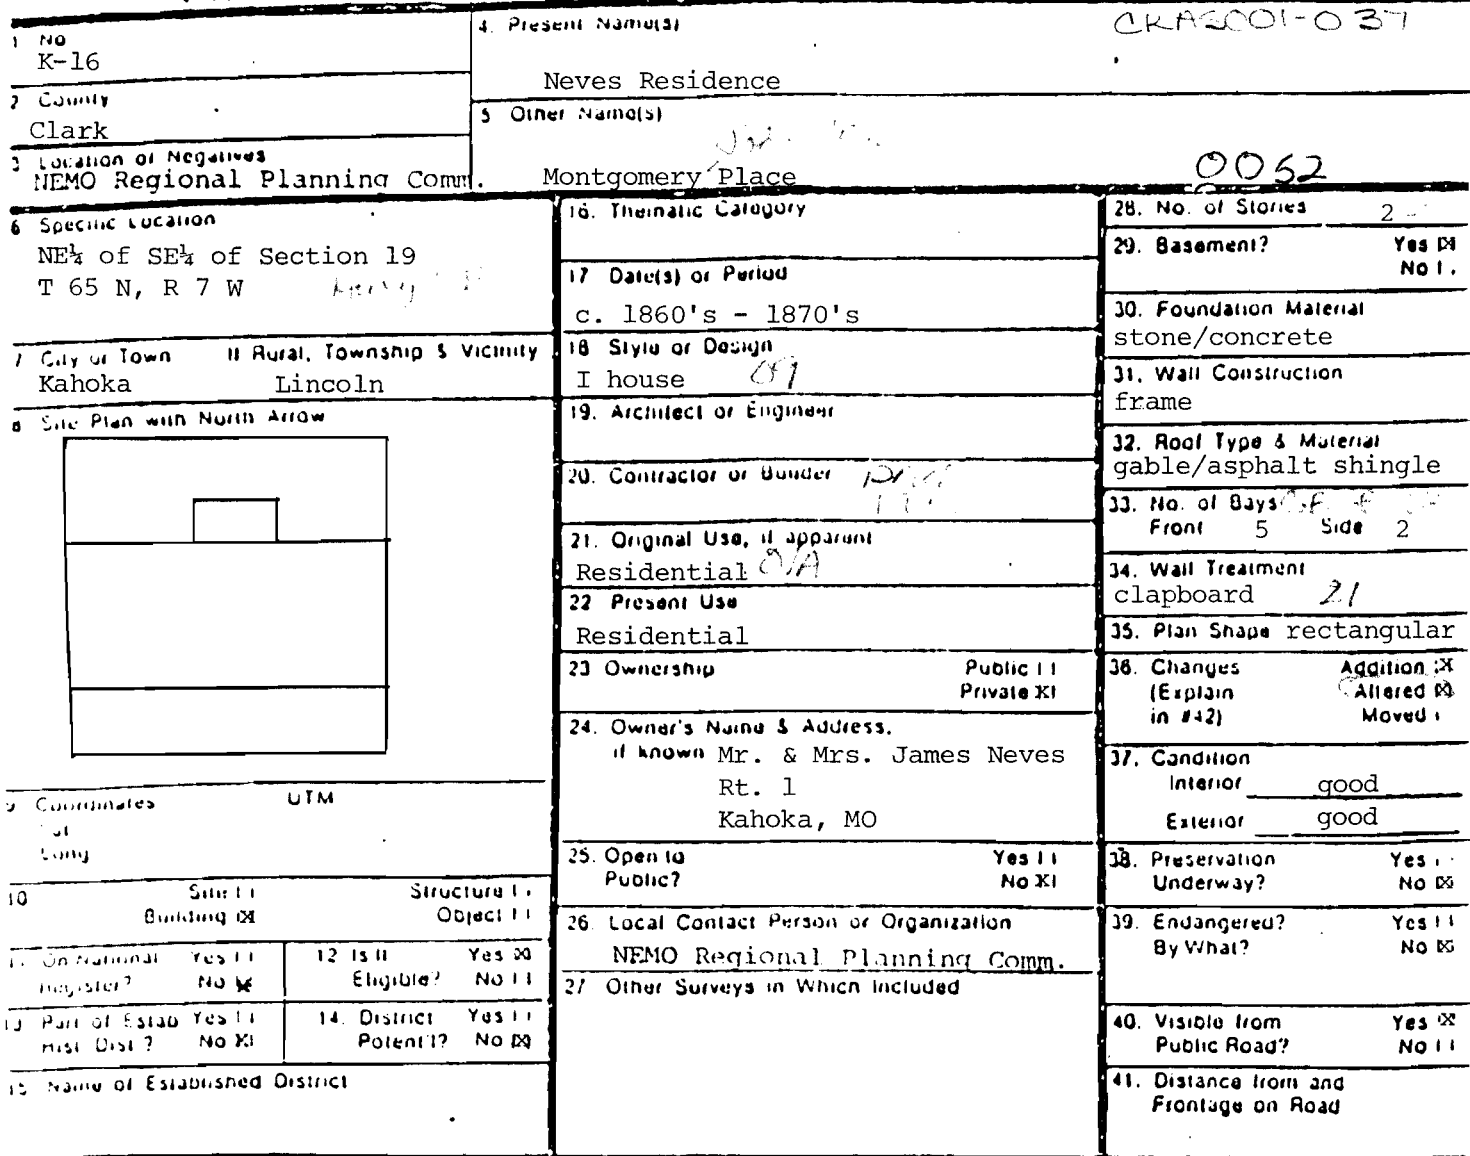 1 No
K-16
2 County
Clark
3 Location of Negatives
NEMO Regional Planning Comm.
4. Present Name(s)
CKAS001-037
Neves Residence
5 Other Name(s)
Montgomery Place
0052
6 Specific Location
NE¼ of SE¼ of Section 19
T 65 N, R 7 W
7 City or Town If Rural, Township & Vicinity
Kahoka Lincoln
8 Site Plan with North Arrow
9 Coordinates UTM
Lat
Long
10 Site [ ] Structure [ ]
Building [X] Object [ ]
11 On National Register? Yes [ ] No [X]
12 Is It Eligible? Yes [X] No [ ]
13 Part of Estab Hist. Dist.? Yes [ ] No [X]
14. District Potent'l? Yes [ ] No [X]
15 Name of Established District
16. Thematic Category
17 Date(s) or Period
c. 1860's - 1870's
18 Style or Design
I house
19. Architect or Engineer
20. Contractor or Builder
21. Original Use, if apparent
Residential
22 Present Use
Residential
23 Ownership Public [ ]
Private [X]
24. Owner's Name & Address,
if known Mr. & Mrs. James Neves
Rt. 1
Kahoka, MO
25. Open to Public? Yes [ ]
No [X]
26. Local Contact Person or Organization
NEMO Regional Planning Comm.
27 Other Surveys in Which Included
28. No. of Stories 2
29. Basement? Yes [X]
No [ ]
30. Foundation Material
stone/concrete
31. Wall Construction
frame
32. Roof Type & Material
gable/asphalt shingle
33. No. of Bays
Front 5 Side 2
34. Wall Treatment
clapboard 21
35. Plan Shape rectangular
36. Changes Addition [X]
(Explain Altered [X]
in #42) Moved [ ]
37. Condition
Interior good
Exterior good
38. Preservation Yes [ ]
Underway? No [X]
39. Endangered? Yes [ ]
By What? No [X]
40. Visible from Yes [X]
Public Road? No [ ]
41. Distance from and
Frontage on Road